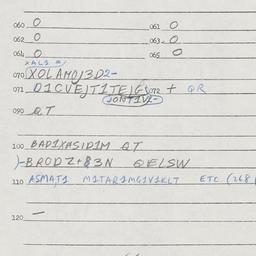 060 O 061 O
062 O 063 O
064 O 065 O
070 XOLAMOJ3D2-
071 01CVEJT1TEJGS 072 + QR
JONT1V2-
090 QT
100 BAD1XHSID1M QT
)-BRODZ+83N QELSW
110 ASMAT1 M1TAR1MG1V1KLT ETC (268
120 —